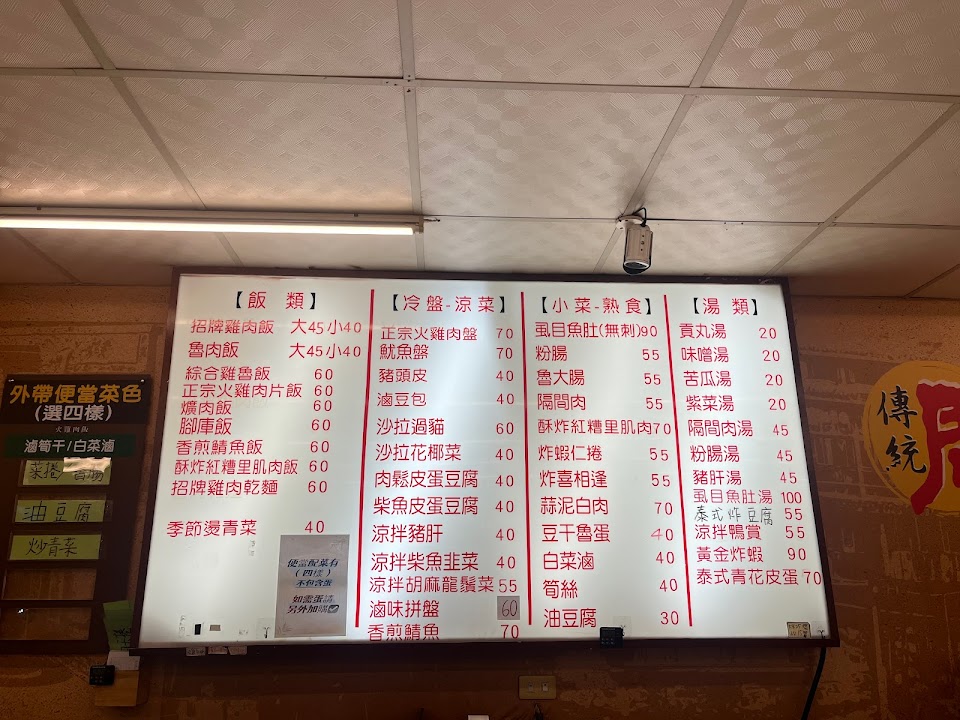 外帶便當菜色
(選四樣)
火雞肉飯
滷筍干/白菜滷
油豆腐
炒青菜
【飯 類】
招牌雞肉飯 大45小40
魯肉飯 大45小40
綜合雞魯飯 60
正宗火雞肉片飯 60
爌肉飯 60
腳庫飯 60
香煎鯖魚飯 60
酥炸紅糟里肌肉飯 60
招牌雞肉乾麵 60
季節燙青菜 40
便當配菜有
(四樣)
不包含蛋
如需蛋請
另外加購
【冷盤-涼菜】
正宗火雞肉盤 70
魷魚盤 70
豬頭皮 40
滷豆包 40
沙拉過貓 60
沙拉花椰菜 60
肉鬆皮蛋豆腐 40
柴魚皮蛋豆腐 40
涼拌豬肝 40
涼拌柴魚韭菜 40
涼拌胡麻龍鬚菜 55
滷味拼盤 60
香煎鯖魚 70
【小菜-熟食】
虱目魚肚(無刺)90
粉腸 55
魯大腸 55
隔間肉 55
酥炸紅糟里肌肉70
炸蝦仁捲 55
炸喜相逢 55
蒜泥白肉 70
豆干魯蛋 40
白菜滷 40
筍絲 40
油豆腐 30
【湯 類】
貢丸湯 20
味噌湯 20
苦瓜湯 20
紫菜湯 20
隔間肉湯 45
粉腸湯 45
豬肝湯 45
虱目魚肚湯 100
泰式炸豆腐 55
涼拌鴨賞 55
黃金炸蝦 90
泰式青花皮蛋 70
傳統